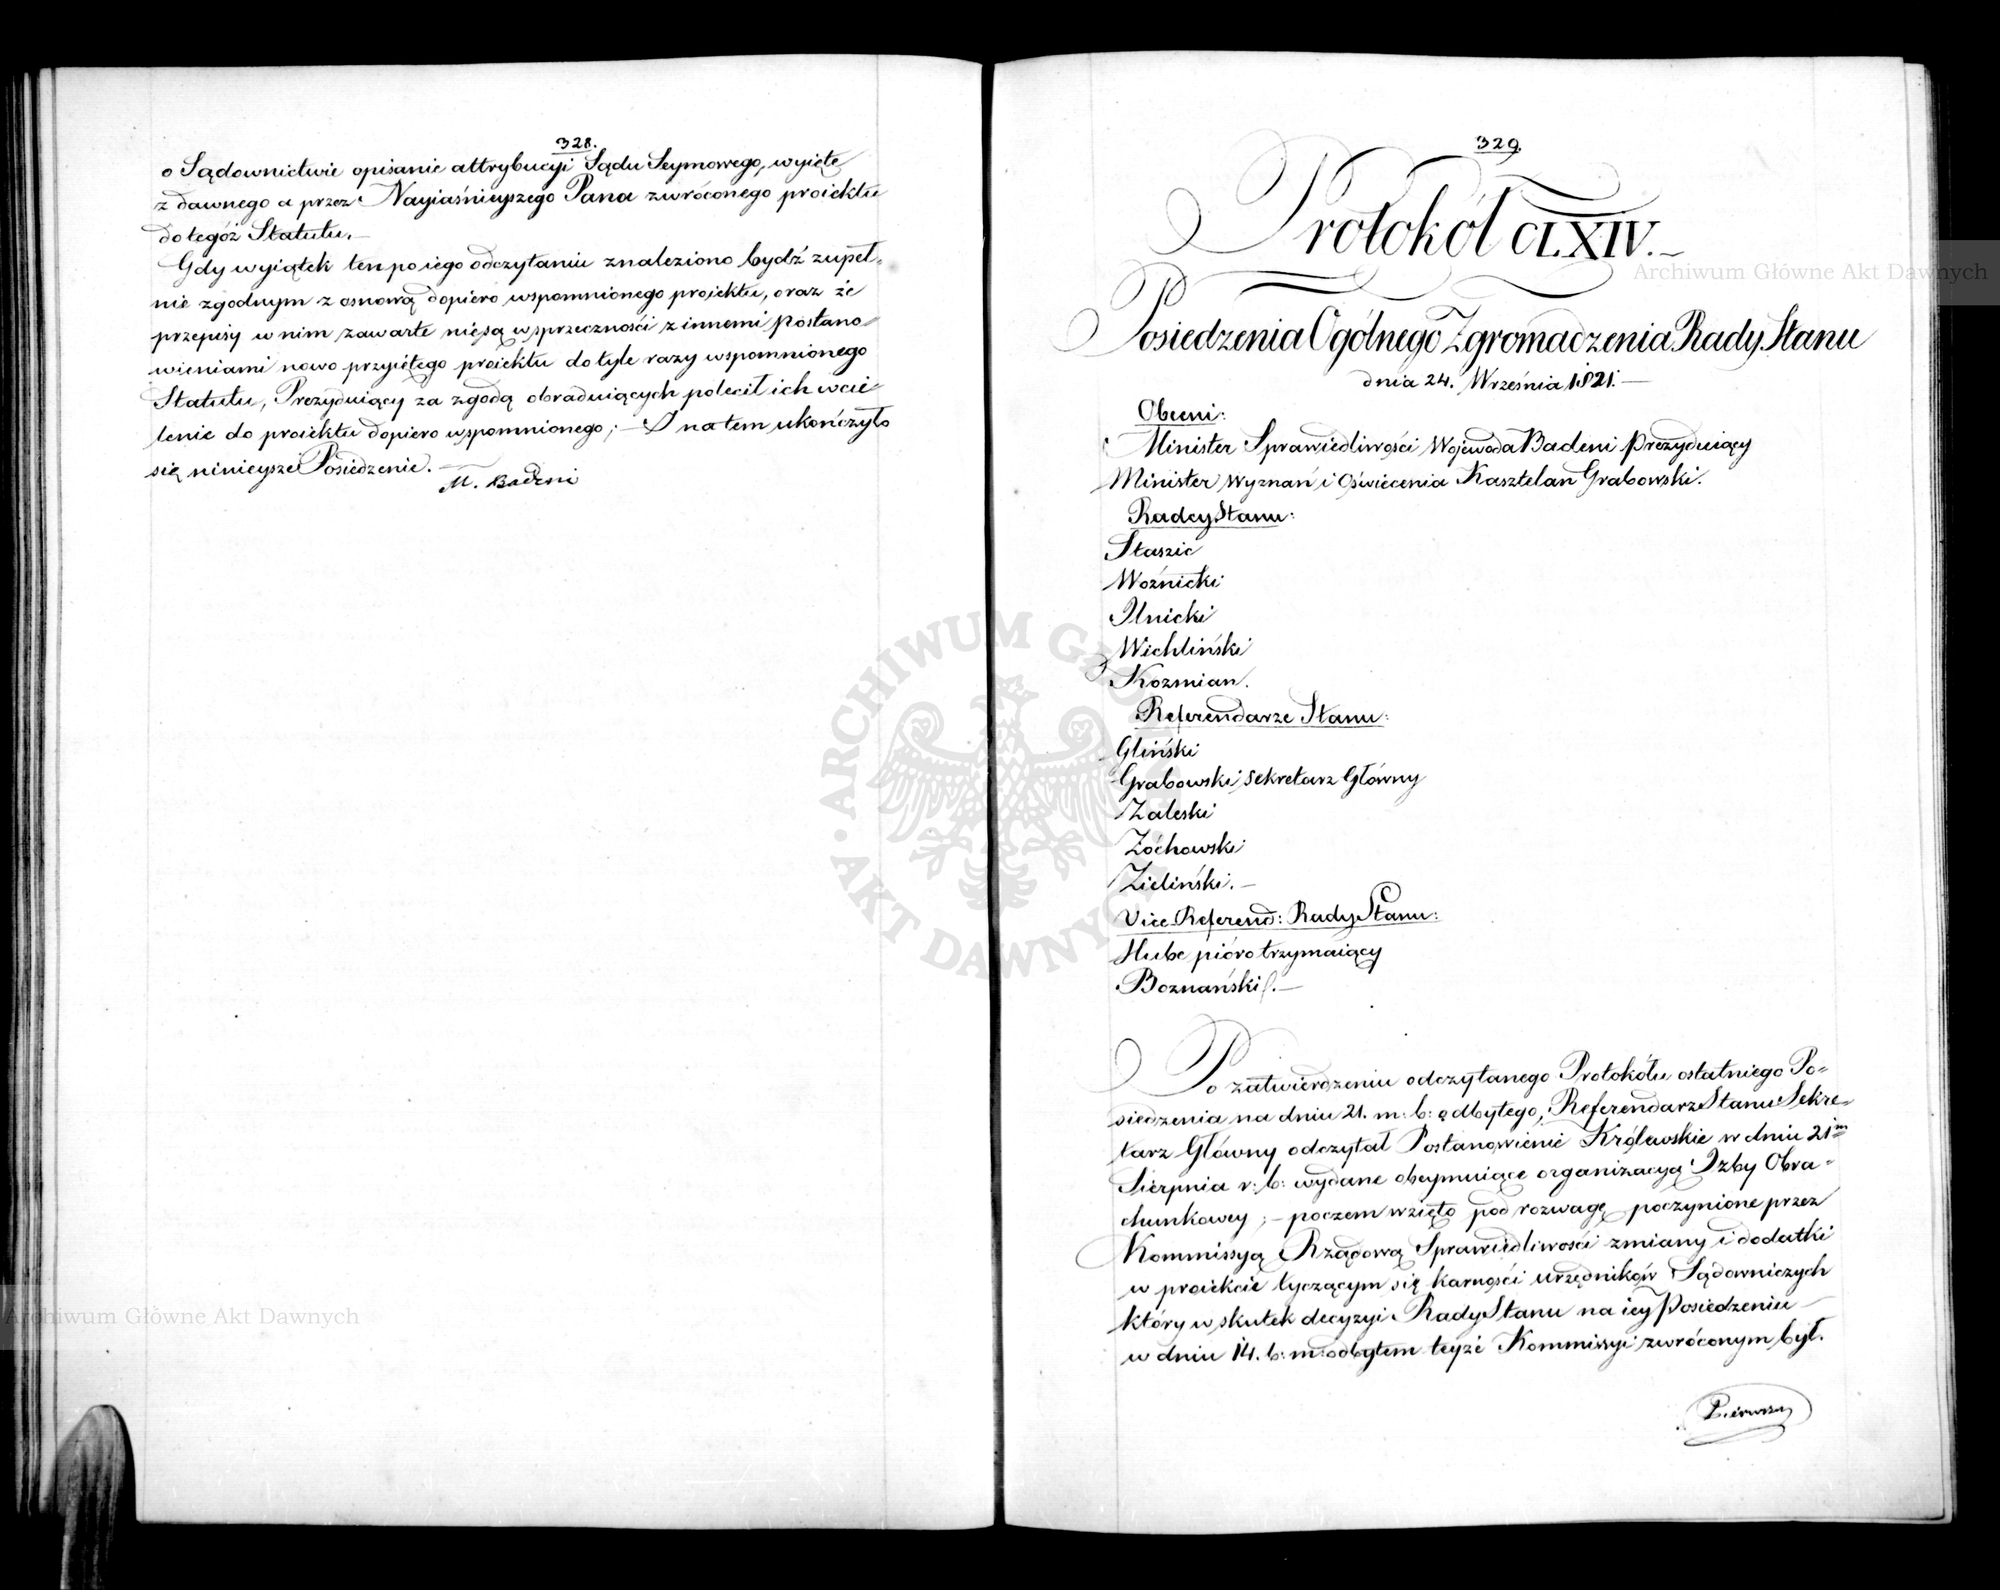 328.
o Sądownictwie opisanie attrybucyi Sądu Seymowego, wyięte
z dawnego a przez Nayiaśnieyszego Pana zwróconego proiektu
do tegoż Statutu.—
Gdy wyiątek ten po iego odczytaniu znaleziono bydź zupeł-
nie zgodnym z osnową dopiero wspomnionego proiektu, oraz że
przepisy w nim zawarte nie są w sprzeczności z innemi postano-
wieniami nowo przyiętego proiektu do tyle razy wspomnionego
Statutu, Prezyduiący za zgodą obraduiących polecił ich wcie-
lenie do proiektu dopiero wspomnionego; — I na tem ukończyło
się ninieysze Posiedzenie.—
M. Badeni
329.
Protokół CLXIV.—
Posiedzenia Ogólnego Zgromadzenia Rady Stanu
dnia 24. Września 1821.—
Obecni:
Minister Sprawiedliwości Wojewoda Badeni Prezyduiący
Minister Wyznań i Oświecenia Kasztelan Grabowski.
Radcy Stanu:
Staszic
Woźnicki
Ilnicki
Wichliński
Kozmian.
Referendarze Stanu:
Gliński
Grabowski Sekretarz Główny
Zaleski
Żóchowski
Zieliński.—
Vice Referend: Rady Stanu:
Hube pióro trzymaiący
Boznański.—
Po zatwierdzeniu odczytanego Protokółu ostatniego Po-
siedzenia na dniu 21. m: b: odbytego, Referendarz Stanu Sekre-
tarz Główny odczytał Postanowienie Królewskie w dniu 21m
Sierpnia r: b: wydane obeymuiące organizacyą Izby Obra-
chunkowey; — poczem wzięto pod rozwagę poczynione przez
Kommissyą Rządową Sprawiedliwości zmiany i dodatki
w proiekcie tyczącym się karności urzędników Sądowniczych
który w skutek decyzyi Rady Stanu na iey Posiedzeniu
w dniu 14. b: m: odbytem teyże Kommissyi zwróconym był.
Pierwszy
Archiwum Główne Akt Dawnych
Archiwum Główne Akt Dawnych
ARCHIWUM GŁÓWNE AKT DAWNYCH